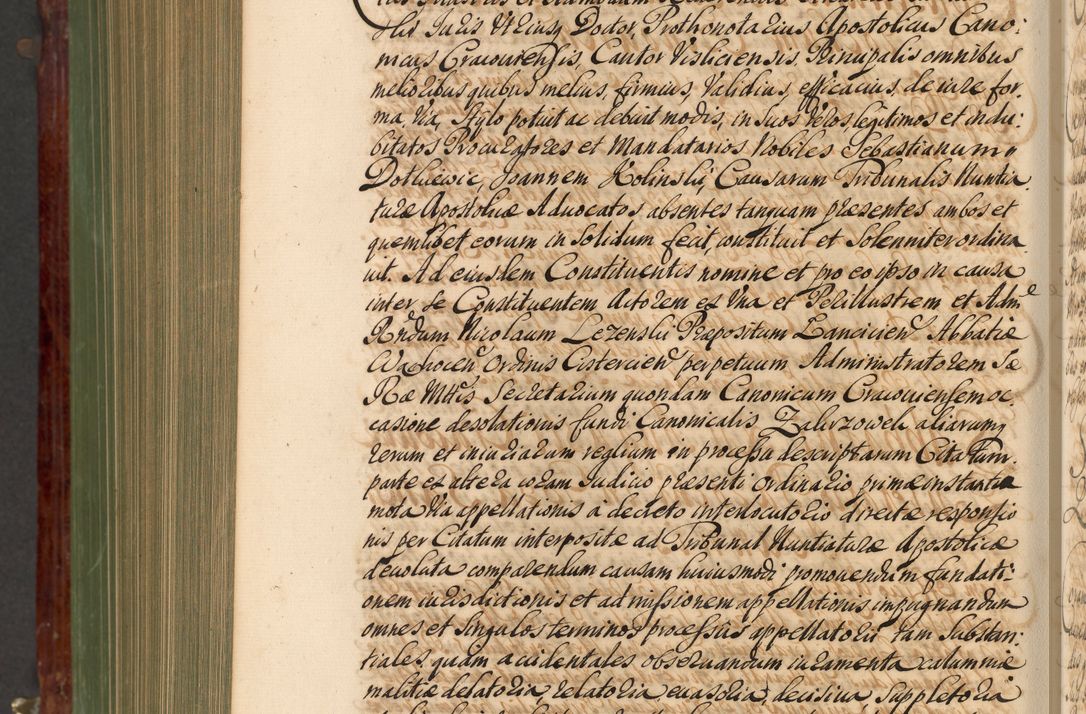 ski Juris Utriusq Doctor, Prothonotarius Apostolicus Cano:
nicus Cracoviensis, Cantor Visliciensis, Principalis omnibus
melioribus quibus melius, firmius, validius, efficacius, de iure for,
ma, via, stylo potuit ac debuit modis, in suos veros, legitimos et indu:
bitatos Procuratores et Mandatarios Nobiles Sebastianum
Dotkiewic, Joannem Kolinskij Causarum Tribunalis Nuntia
turæ Apostolicæ Advocatos, absentes tanquam præsentes ambos et
quemlibet eorum in solidum fecit, constituit et solenniter ordina
vit. Ad eiusdem Constituentis nomine et pro eo ipso in causa
inter se Constituentem Actorem ex una et Perillustrem et Adm
Rndum Nicolaum Lezenski Præpositum Lanciciens Abbatiæ
Wachocens Ordinis Cisterciens perpetuum Administratorem Sæ
Ræ Mttis Secretarium quondam Canonicum Cracoviensem oc,
casione desolationis fundi Canonicalis Zakrzowek aliarumq
rerum et iniuriarum regestrum in processu descriptarum Citatum
parte ex altera coram Judicio præsenti Ordinario primæ instantiæ
mota via appellationis à decreto interlocutorio directæ responsio
nis per Citatum interpositæ ad Tribunal Nuntiaturæ Apostolicæ
devoluta comparendum causam huiusmodi promovendum fundati:
onem iurisdictionis et admissionem appellationis impugnandum
omnes et singulos terminos processus appellatorii tam substan:
tiales, quam accidentales observandum iuramenta calumniæ
malitiæ delatoria, relatoria, evasoria, decisiva, suppletoria